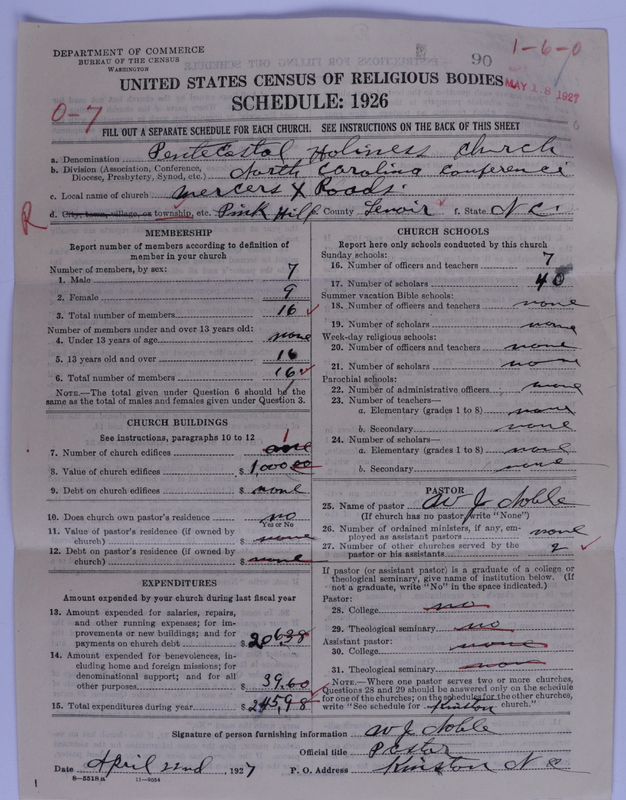 DEPARTMENT OF COMMERCE
BUREAU OF THE CENSUS
WASHINGTON
90
1-6-0
UNITED STATES CENSUS OF RELIGIOUS BODIES
MAY 18 1927
SCHEDULE: 1926
0-7
FILL OUT A SEPARATE SCHEDULE FOR EACH CHURCH. SEE INSTRUCTIONS ON THE BACK OF THIS SHEET
a. Denomination Pentecostal Holiness Church
b. Division (Association, Conference, Diocese, Presbytery, Synod, etc.) North Carolina Conference
c. Local name of church Mercers X Roads.
d. City, town, village, or township, etc. Pink Hill e. County Lenoir f. State N C.
R
MEMBERSHIP
Report number of members according to definition of
member in your church
Number of members, by sex:
1. Male 7
2. Female 9
3. Total number of members 16
Number of members under and over 13 years old:
4. Under 13 years of age none
5. 13 years old and over 16
6. Total number of members 16
NOTE.—The total given under Question 6 should be the
same as the total of males and females given under Question 3.
CHURCH BUILDINGS
See instructions, paragraphs 10 to 12
7. Number of church edifices one 1
8. Value of church edifices $ 1,000 00
9. Debt on church edifices $ none
10. Does church own pastor's residence no
Yes or No
11. Value of pastor's residence (if owned by
church) $ none
12. Debt on pastor's residence (if owned by
church) $ none
EXPENDITURES
Amount expended by your church during last fiscal year
13. Amount expended for salaries, repairs,
and other running expenses; for im-
provements or new buildings; and for
payments on church debt $ 206.38
14. Amount expended for benevolences, in-
cluding home and foreign missions; for
denominational support; and for all
other purposes $ 39.60
15. Total expenditures during year $ 245.98
CHURCH SCHOOLS
Report here only schools conducted by this church
Sunday schools:
16. Number of officers and teachers 7
17. Number of scholars 40
Summer vacation Bible schools:
18. Number of officers and teachers none
19. Number of scholars none
Week-day religious schools:
20. Number of officers and teachers none
21. Number of scholars none
Parochial schools:
22. Number of administrative officers none
23. Number of teachers—
a. Elementary (grades 1 to 8) none
b. Secondary none
24. Number of scholars—
a. Elementary (grades 1 to 8) none
b. Secondary none
PASTOR
25. Name of pastor W J Noble
(If church has no pastor write "None")
26. Number of ordained ministers, if any, em-
ployed as assistant pastors none
27. Number of other churches served by the
pastor or his assistants 2
If pastor (or assistant pastor) is a graduate of a college or
theological seminary, give name of institution below. (If
not a graduate, write "No" in the space indicated.)
Pastor:
28. College no
29. Theological seminary no
Assistant pastor:
30. College none
31. Theological seminary none
NOTE.—Where one pastor serves two or more churches,
Questions 28 and 29 should be answered only on the schedule
for one of the churches; on the schedules for the other churches,
write "See schedule for Kinston church."
Signature of person furnishing information W J Noble
Official title Pastor
Date April 22nd, 1927 P. O. Address Kinston N C
8—5518a 11—9054